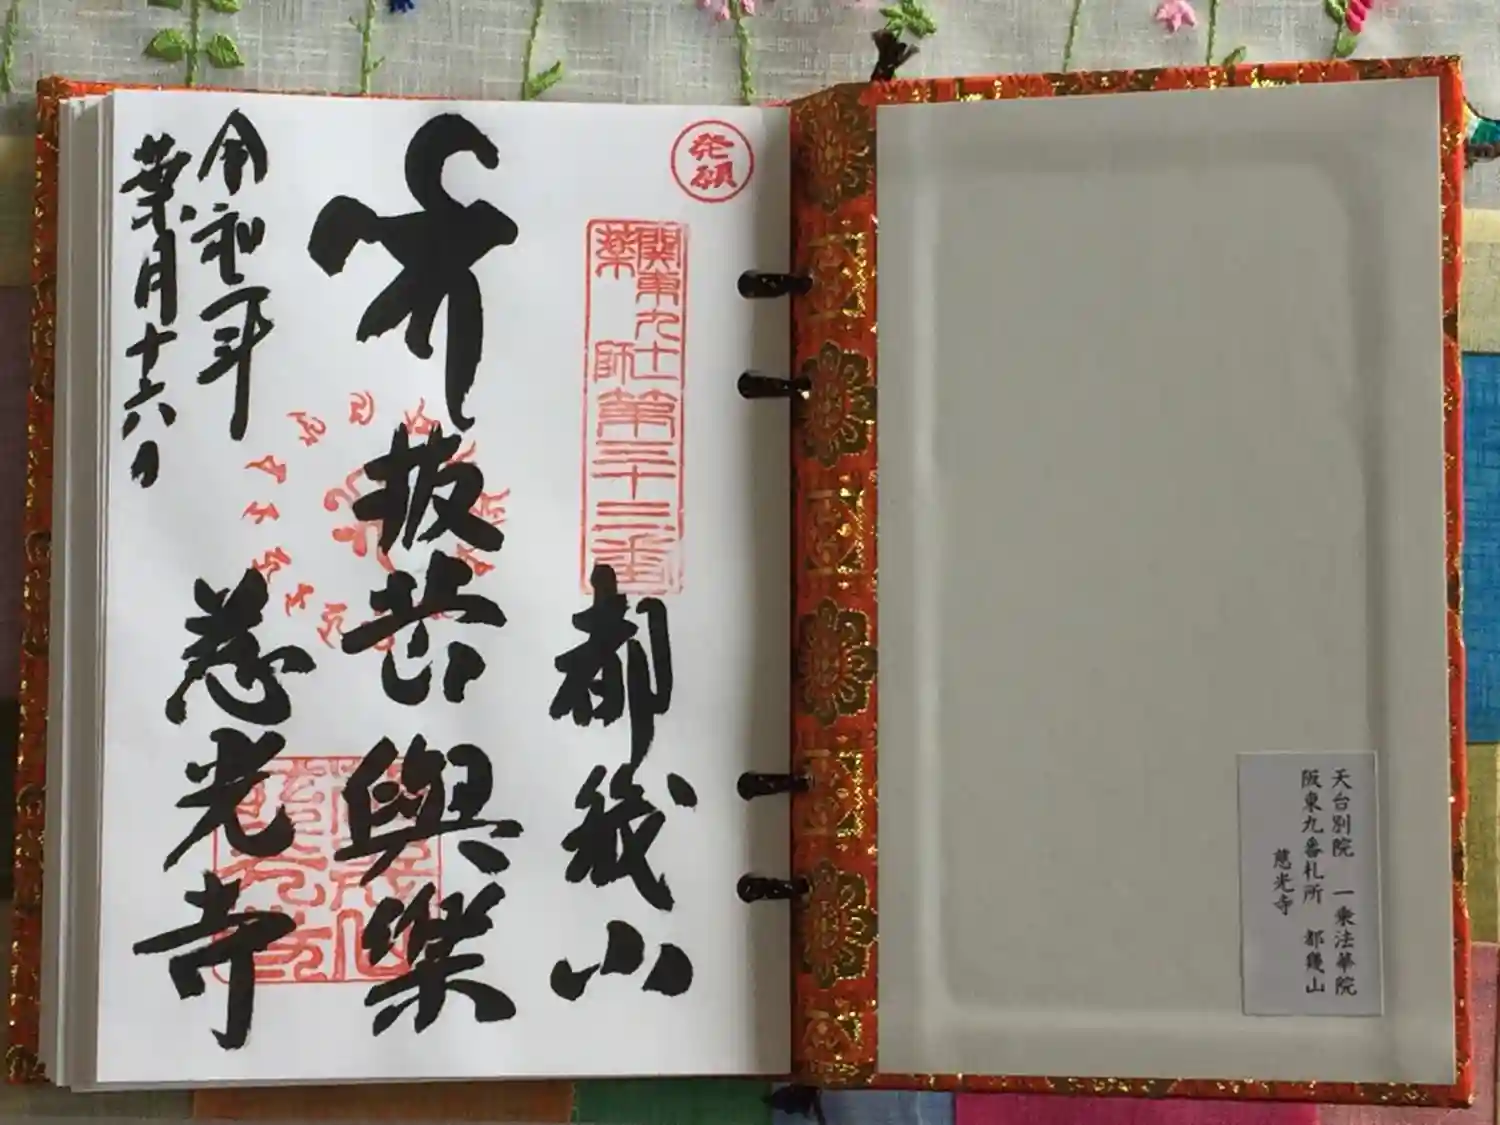 天台別院 一乗法華院
阪東九番札所 都幾山
慈光寺
発願
関東九十一
薬師第三十三番
都幾山
抜苦與楽
慈光寺
令和元年
葉月十六日